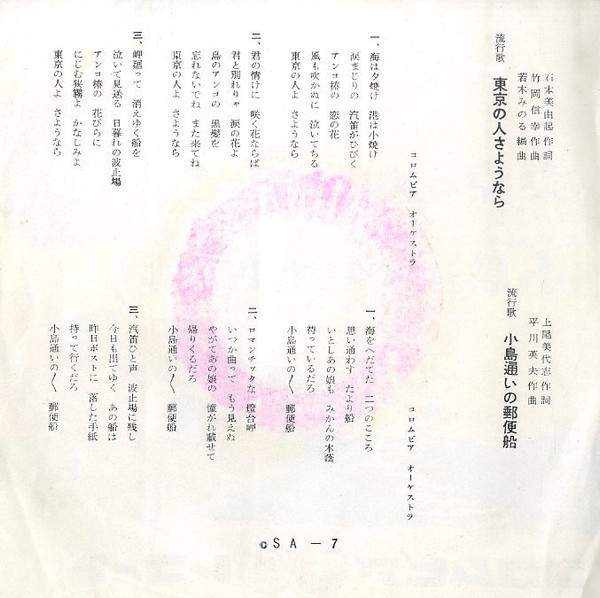 石本美由起作詞
竹岡信幸作曲
若木みのる編曲
流行歌
東京の人さようなら
コロムビア オーケストラ
一、海は夕焼け 港は小焼け
涙まじりの 汽笛がひびく
アンコ椿の 恋の花
風も吹かぬに 泣いてちる
東京の人よ さようなら
二、君の情けに 咲く花ならば
君と別れりゃ 涙の花よ
島のアンコの 黒髪を
忘れないでね また来てね
東京の人よ さようなら
三、岬廻って 消えゆく船を
泣いて見送る 日暮れの波止場
アンコ椿の 花びらに
にじむ狭霧よ かなしみよ
東京の人よ さようなら
上尾美代志作詞
平川英夫作曲
流行歌
小島通いの郵便船
コロムビア オーケストラ
一、海をへだてた 二つのこころ
思い通わす たより船
いとしあの娘も みかんの木蔭
待っているだろ
小島通いの〱 郵便船
二、ロマンチックな 燈台岬
いつか曲って もう見えぬ
やがてあの娘の 憧がれ載せて
帰りくるだろ
小島通いの〱 郵便船
三、汽笛ひと声 波止場に残し
今日も出てゆく あの船は
昨日ポストに 落した手紙
持って行くだろ
小島通いの〱 郵便船
©SA－7